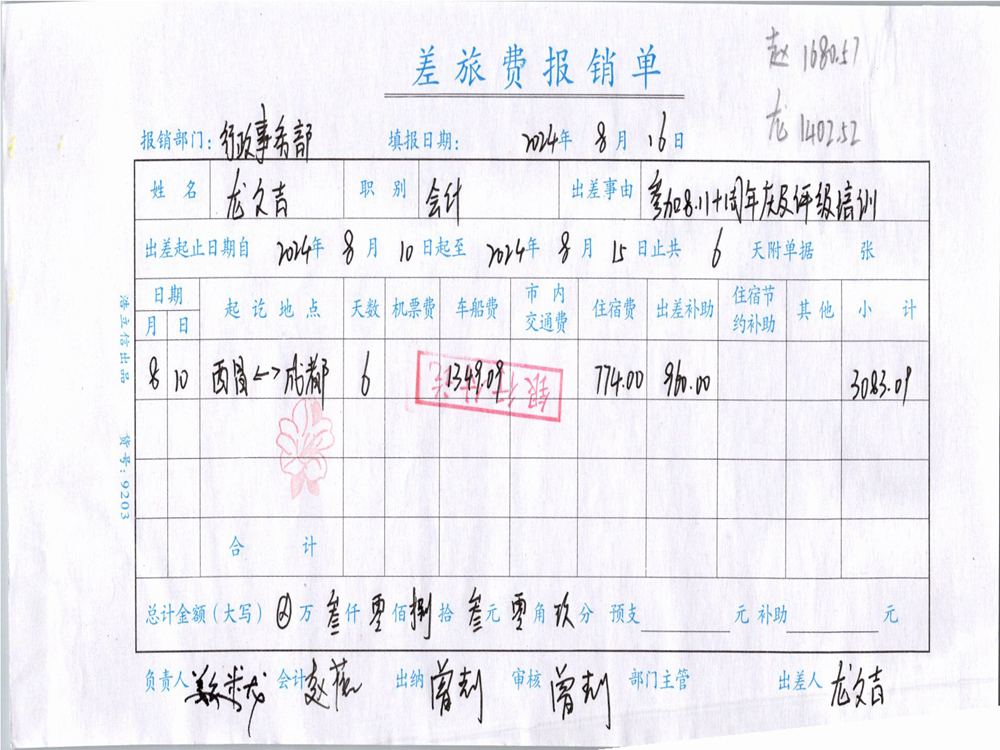 赵 1680.57
差旅费报销单
龙 1402.52
报销部门：行政事务部 填报日期： 2024年 8月 16日
姓名 龙文吉 职别 会计 出差事由 参加8.1八十周年庆及评级培训
出差起止日期自 2024年 8月 10日起至 2024年 8月 15日止共 6 天附单据 张
日期 起讫地点 天数 机票费 车船费 市内交通费 住宿费 出差补助 住宿节约补助 其他 小计
月 日
8 10 西昌<->成都 6 1349.09 774.00 960.00 3083.09
银行付讫
合计
总计金额（大写） ⊗万 叁仟 零佰 捌拾 叁元 零角 玖分 预支 元 补助 元
负责人 会计 赵 出纳 曾 审核 曾 部门主管 出差人 龙文吉
浩立信出品 货号：9203